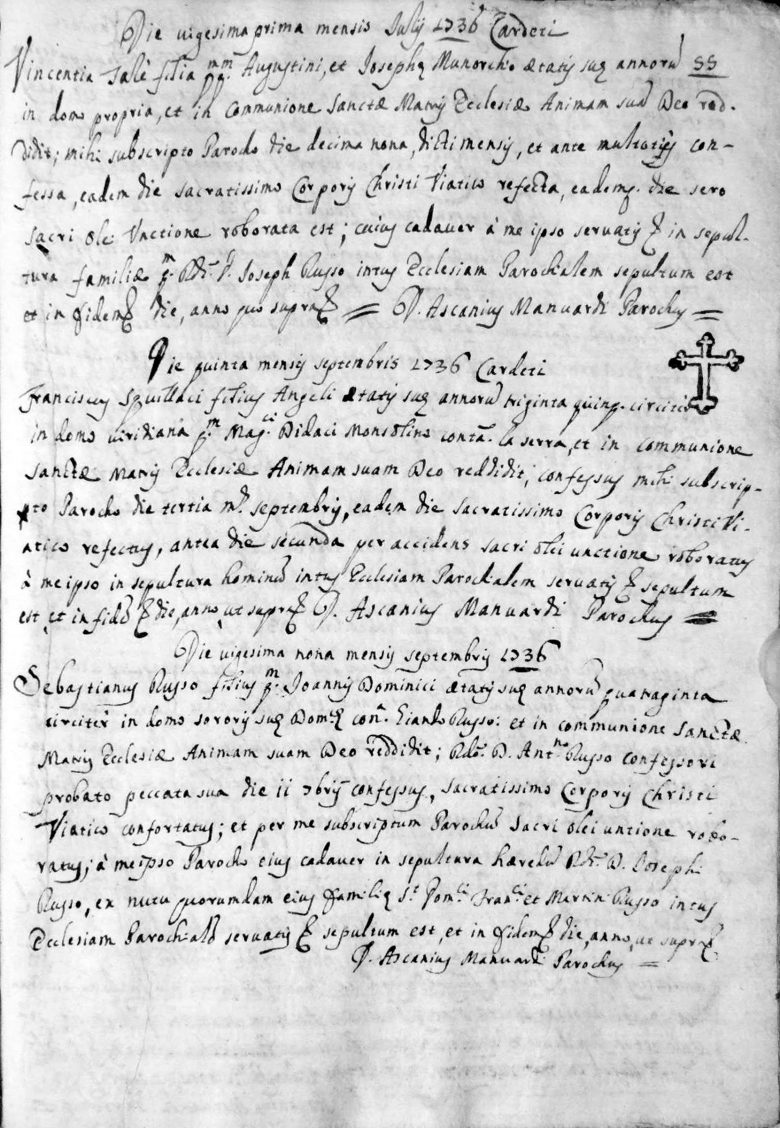 Die vigesima prima mensis Julÿ 1736 Cardeti
Vincentia Salè filia qm̃ Augustini, et Josephę Munorcho ætatÿ suę annorũ 55
in domo propria, et in Communione Sanctæ Matrÿ Ecclesiæ Animam suã Deo red-
didit; mihi subscripto Parocho die decima nona, dicti mensÿ, et ante con-
fessa, eadem die sacratissimo Corporÿ Christi Viatico refecta, eademq. die sero
sacri olei Unctione roborata est; cuius cadauer à me ipso seruatÿ in sepul-
tura familiæ qm Rdi D. Joseph Russo intus Ecclesiam Parochialem sepultum est
et in fidem die, anno quo supra = D. Ascanius Manuardi Parochus =
Die quinta mensÿ septembris 1736 Cardeti
Franciscus Squillaci filius Angeli ætatÿ suę annorũ triginta quinq. circiter
in domo viridiaria qm Magci Didaci Monsolino conta la serra, et in communione
Sanctæ Matrÿ Ecclesiæ Animam suam Deo reddidit; confessus mihi subscrip-
to Parocho die tertia ms. septembrÿ, eadem die Sacratissimo Corporÿ Christi Vi-
atico refectus, antea die secunda per accidens sacri olei unctione roboratus
à me ipso in sepultura hominũ intus Ecclesiam Parochialem seruatÿ sepultum
est, et in fidẽ die, anno, ut supra D. Ascanius Manuardi Parochus =
Die vigesima nona mensÿ septembrÿ 1736
Sebastianus Russo filius qm Joannis Dominici ætatÿ suę annorũ quaraginta
circiter in domo sororÿ suę con. Russo: et in communione Sanctæ
Matrÿ Ecclesiæ Animam suam Deo reddidit; Rdo. D. Antno Russo confessori
probato peccata sua die ii 7brÿ confessus, sacratissimo Corporÿ Christi
Viatico confortatus; et per me subscriptum Parochũ Sacri olei untione robo-
ratus; à me ipso Parocho eius cadauer in sepultura hæredũ Rdi. D. Josephi
Russo, ex nutu quorumdam eius familię Franci et Martini Russo intus
Ecclesiam Parochialẽ seruatÿ sepultum est, et in fidem die, anno, ut supra
D. Ascanius Manuardi Parochus =